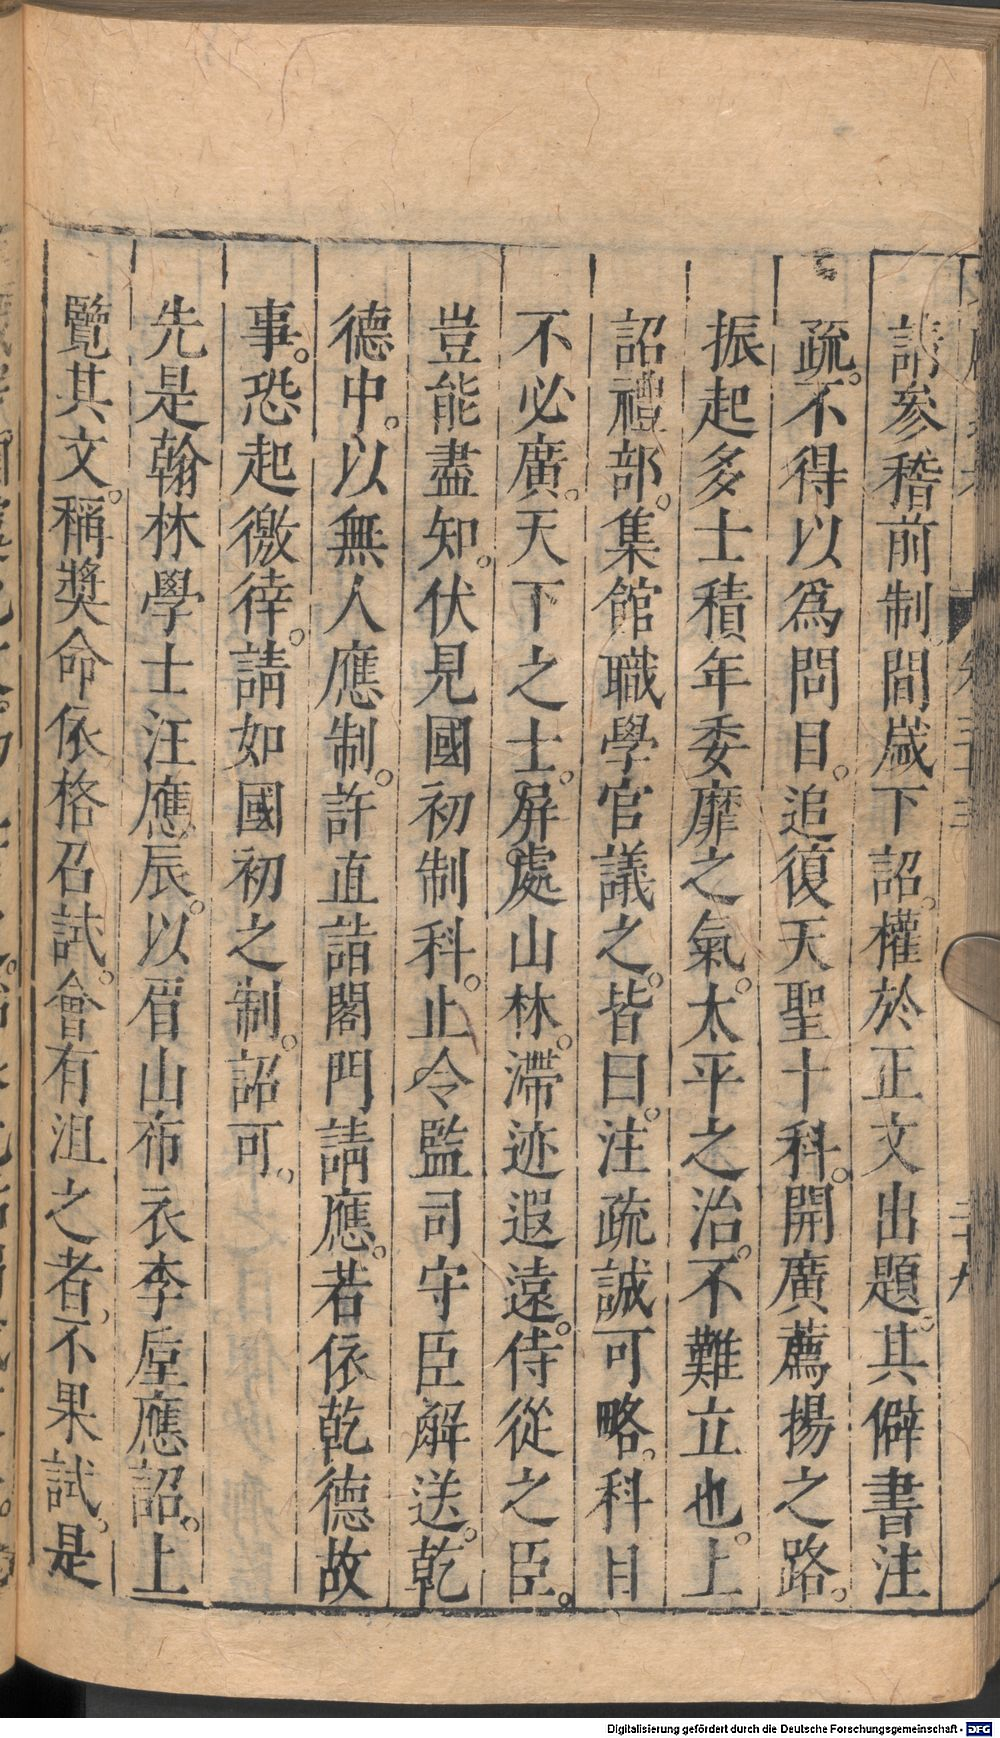 請參稽前制間歲下詔。權於正文出題。其僻書注
疏。不得以爲問目。追復天聖十科。開廣薦揚之路。
振起多士積年委靡之氣。太平之治。不難立也。上
詔禮部。集館職學官議之。皆曰。注疏誠可略。科目
不必廣。天下之士。屏處山林。滯迹遐遠。侍從之臣。
豈能盡知。伏見國初制科。止令監司守臣解送。乾
德中。以無人應制。許直詣閤門請應。若依乾德故
事。恐起徼倖。請如國初之制。詔可。
先是翰林學士汪應辰。以眉山布衣李垕應詔。上
覽其文。稱獎命依格召試。會有沮之者。不果試。是
卷三十三
二十九
Digitalisierung gefördert durch die Deutsche Forschungsgemeinschaft - DFG